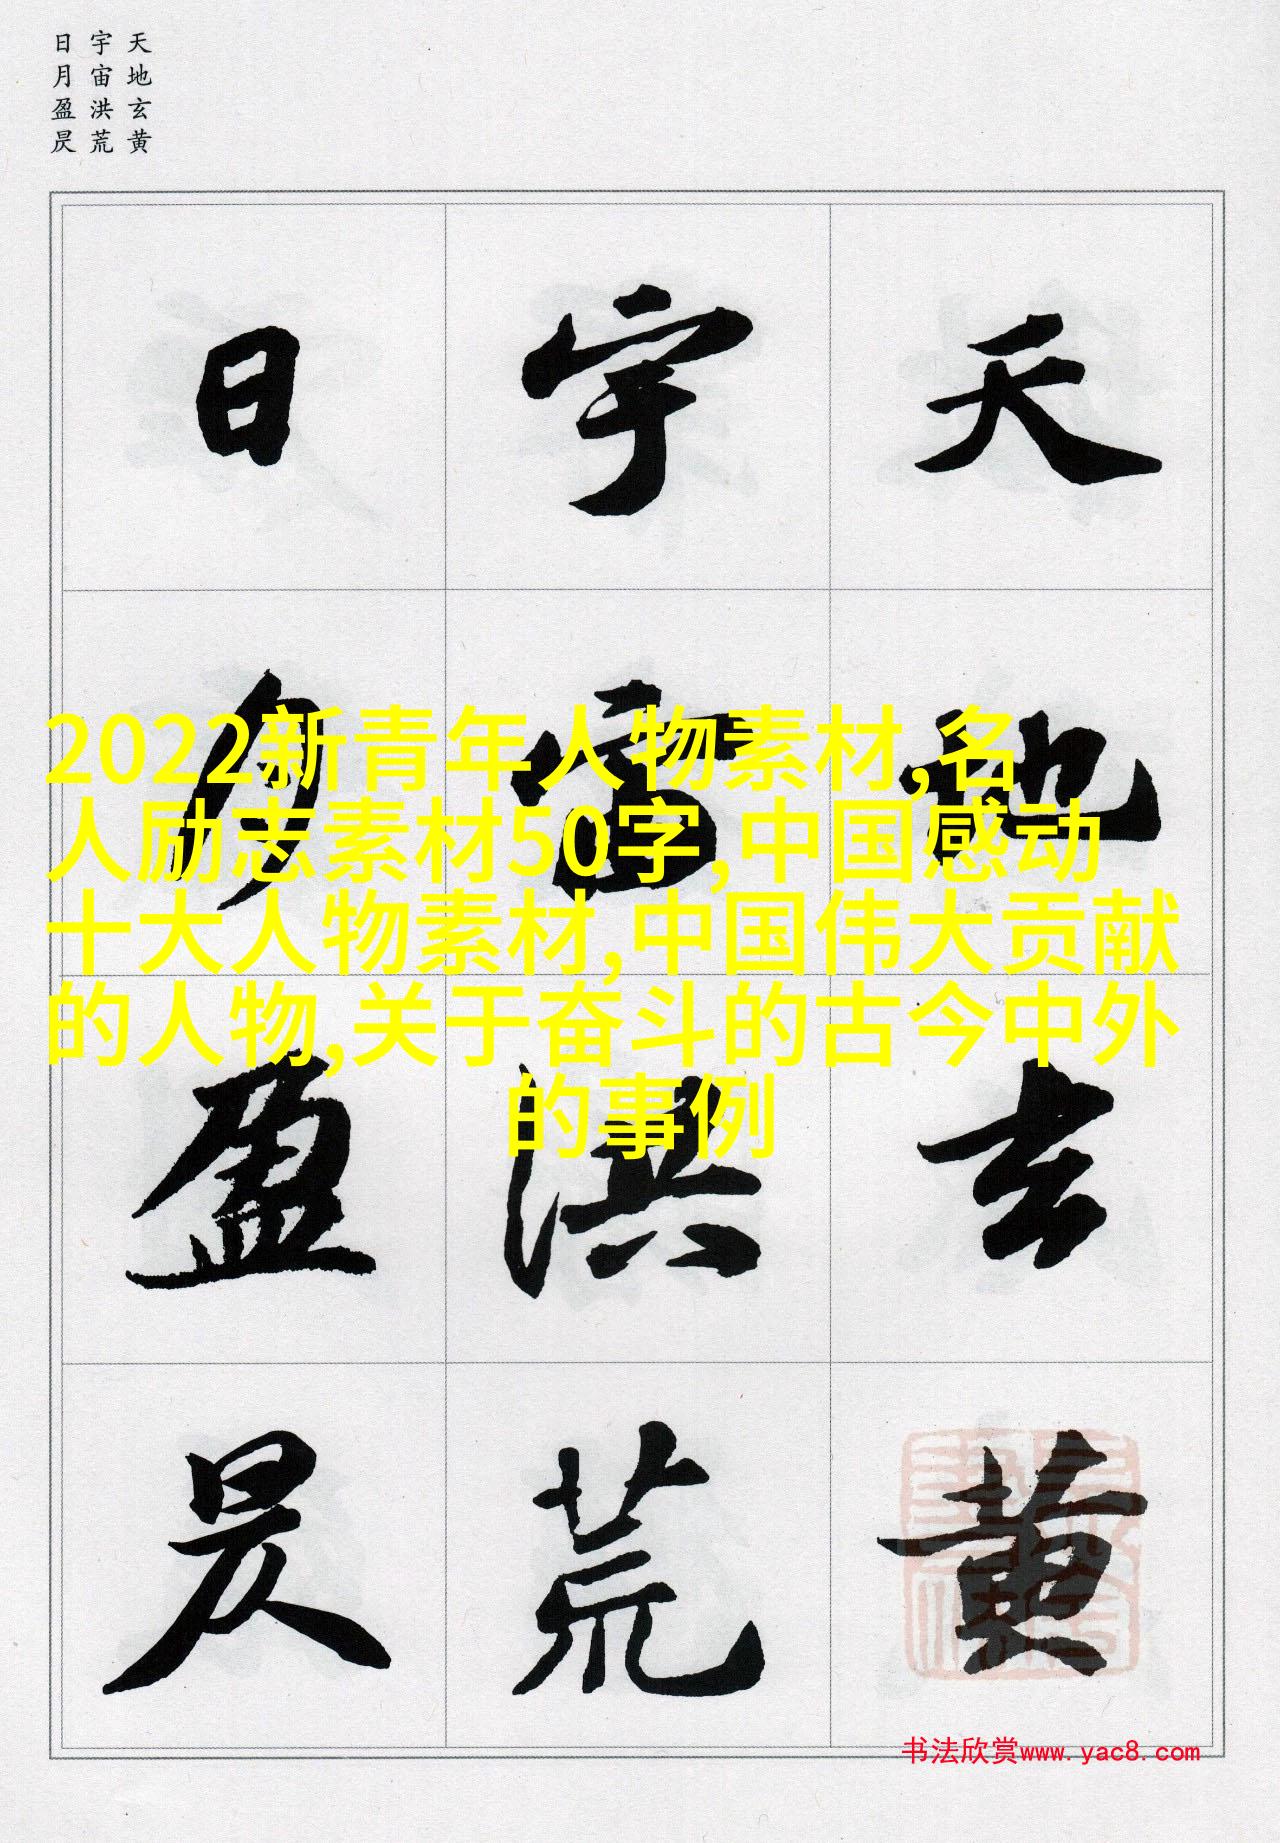 天地玄黄
宇宙洪荒
日月盈昃
天地玄黄
宇宙洪荒
日月盈昃
2022新青年人物素材,名
人励志素材50字,中国感动
十大人物素材,中国伟大贡献
的人物,关于奋斗的古今中外
的事例
书法欣赏www.yac8.com